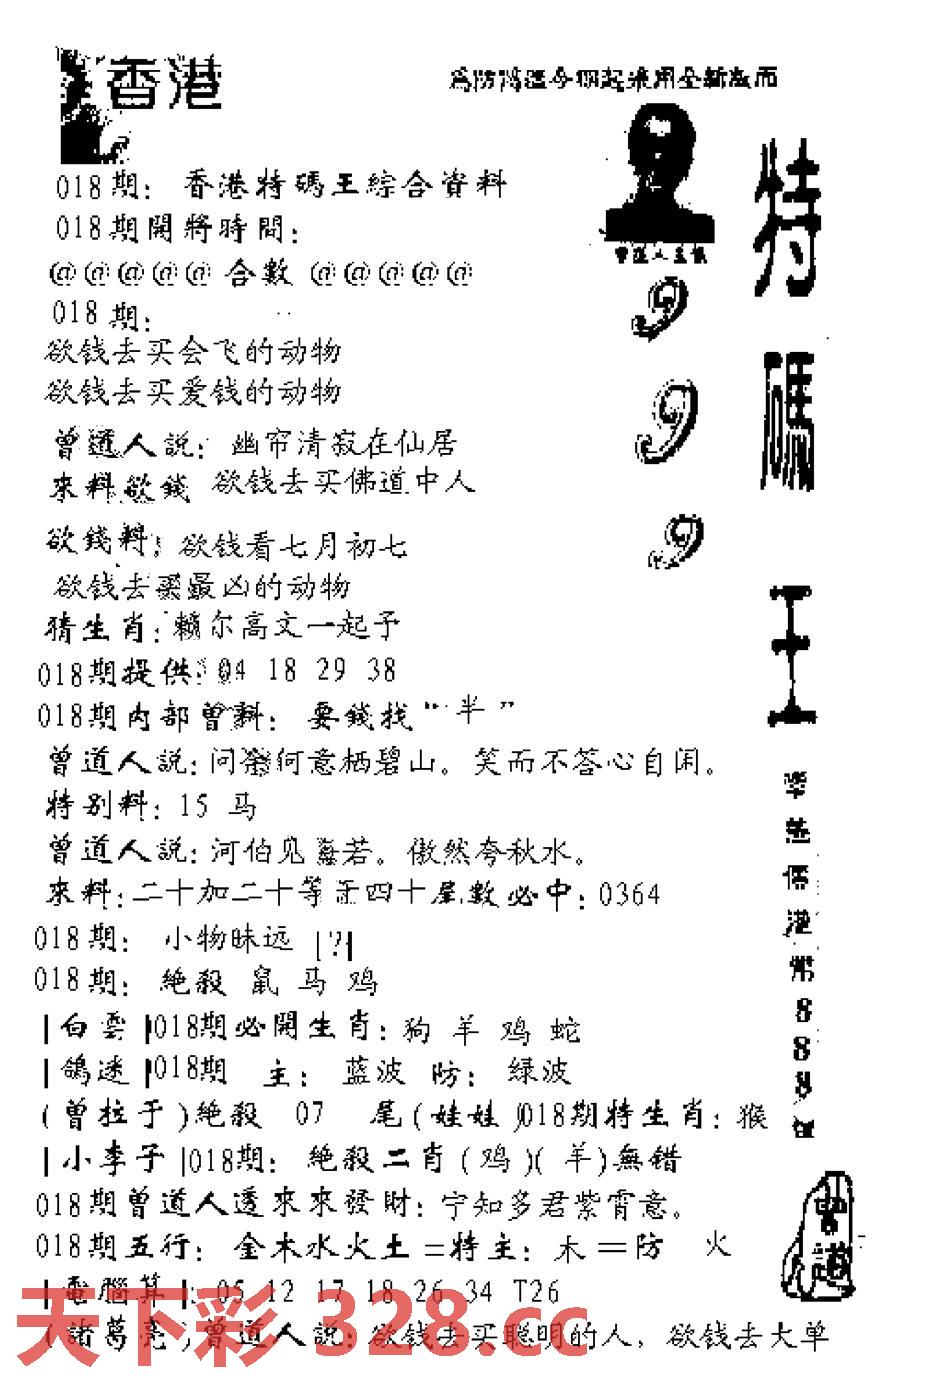 香港
為防
018期：香港特碼王綜合資料
018期開將時間：
@@@@@合數@@@@@
曾道人
018期：
欲钱去买会飞的动物
欲钱去买爱钱的动物
曾道人説：幽帘清寂在仙居
來料欲錢 欲钱去买佛道中人
欲錢料：欲钱看七月初七
欲钱去买最凶的动物
猜生肖：赖尔高文一起予
018期提供：04 18 29 38
018期内部曾料：要錢找“半”
曾道人説：问爺何意栖碧山。笑而不答心自闲。
特别料：15 马
曾道人説：河伯见海若。傲然夸秋水。
來料：二十加二十等于四十尾數必中：0364
018期：小物昧远 [?]
018期：絶殺 鼠 马 鸡
|白雲|018期必開生肖：狗 羊 鸡 蛇
|鴿迷|018期 主：蓝波 防：绿波
(曾拉于)絶殺 07 尾(娃娃)018期特生肖：猴
|小李子|018期：絶殺二肖(鸡)(羊)無错
018期曾道人透來來發財：宁知多君紫霄意。
018期五行：金木水火土=特主：木=防 火
|電腦算|：05 12 17 18 26 34 T26
(諸葛亮)曾道人説：欲钱去买聪明的人，欲钱去大单
特碼王
999
港
888
曾道
天下彩 328.cc